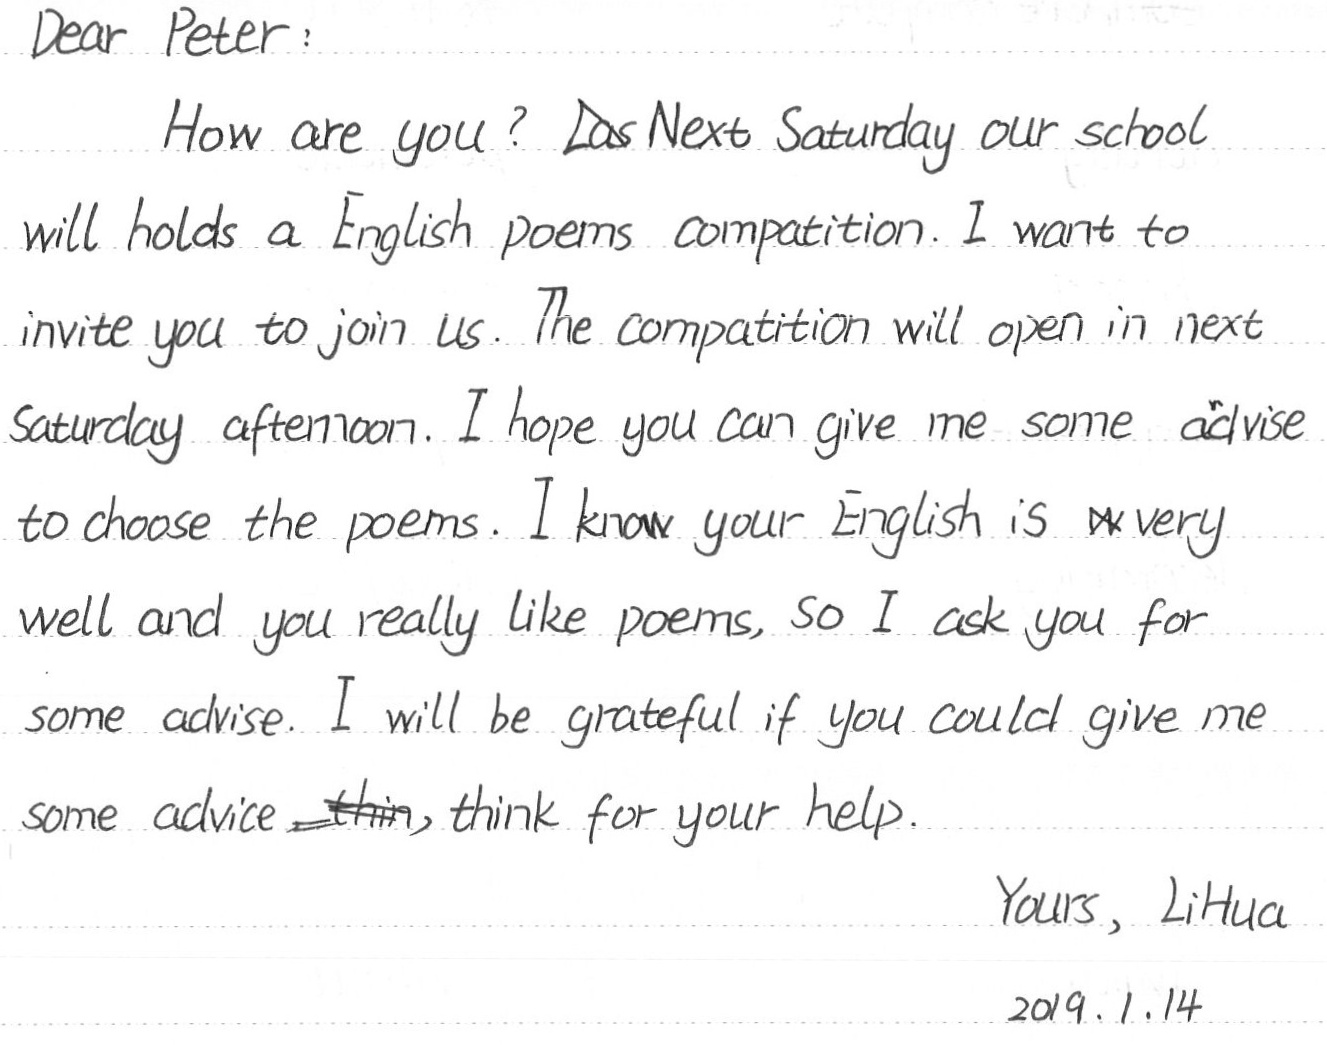 Dear Peter:
How are you? Next Saturday our school
will holds a English poems compatition. I want to
invite you to join us. The compatition will open in next
Saturday afternoon. I hope you can give me some advise
to choose the poems. I know your English is very
well and you really like poems, so I ask you for
some advise. I will be grateful if you could give me
some advice, think for your help.
Yours, LiHua
2019.1.14